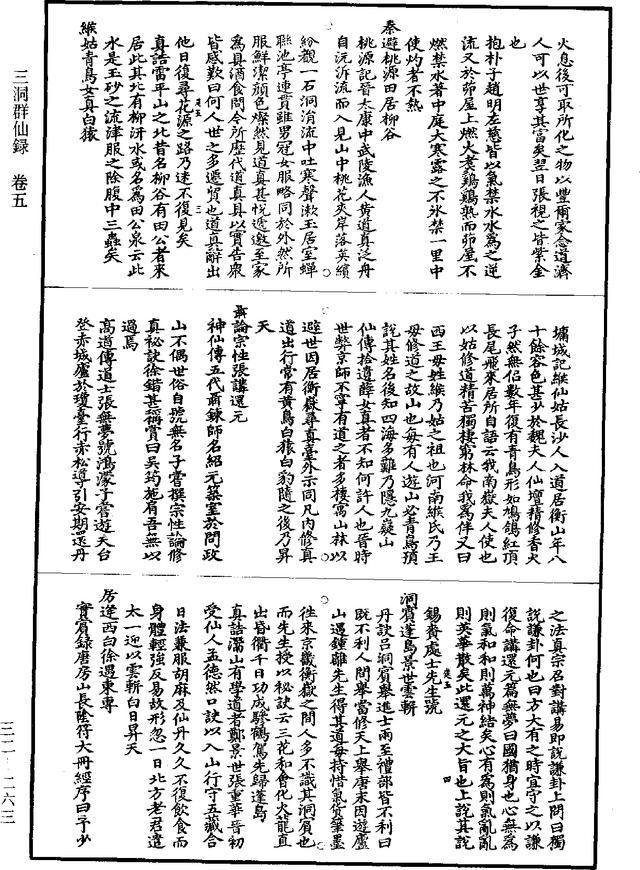 三洞群仙録　卷五
火息後可取所化之物以豐爾家念道濟
人可以世享其富矣翌日張視之皆紫金
也
抱朴子趙明左慈皆以氣禁水水爲之逆
流又於茆屋上燃火煑鷄鷄熟而茆屋不
燃禁水著中庭大寒露之不氷禁一里中
使灼者不熱
秦避桃源田居柳谷
桃源記晉太康中武陵漁人黄道真泛舟
自沅泝流而入見山中桃花夾岸落英繽
紛觀一石洞涓流中吐寒聲漱玉居室蟬
聯池亭連貫雖男冠女服略同於外然所
服鮮潔顔色燦然見道真甚悅遞邀至家
爲具酒食問今所歷代道真具以實告衆
皆感歎曰何人世之多遷貿也道真辭出
他日復尋花源之路乃迷不復見矣
真誥雷平山之北昔名柳谷有田公者來
居此其北有柳汧水或名爲田公泉云此
水是玉砂之流津服之除腹中三蟲矣
緱姑青鳥女真白猿
墉城記緱仙姑長沙人入道居衡山年八
十餘容色甚少於魏夫人仙壇精修香火
孑然無侶數年復有青鳥形如鳩鴿紅頂
長尾飛來居所自語云我南嶽夫人使也
以姑修道精苦獨棲窮林命我爲伴又曰
西王母姓緱乃姑之祖也河南緱氏乃王
母修道之故山也每有人遊山必青鳥預
說其姓名後知四海多難乃隱九嶷山
仙傳拾遺薛女真者不知何許人也晉時
世弊京師不寧有道之者多棲寓山林以
避世因居衡嶽尋真臺外示同凡内修真
道出行常有黄鳥白猿白豹隨之後乃昇
天
肅論宗性張講還元
神仙傳五代肅鍊師名紹元築室於問政
山不偶世俗自號無名子嘗撰宗性論修
真祕訣徐鍇甚稱賞曰吳筠施肩吾無以
過焉
高道傳道士張無夢號鴻濛子嘗遊天台
登赤城廬於瓊臺行赤松導引安期還丹
之法真宗召對講易即說謙卦上問曰獨
說謙卦何也曰方大有之時宜守之以謙
復命講還元篇無夢曰國猶身也心無爲
則氣和和則萬神結矣心有爲則氣亂亂
則英華散矣此還元之大旨也上說其說
錫齋處士先生號
洞賓蓬島景世雲軿
丹訣吕洞賓舉進士兩至禮部皆不利曰
既不利人間舉當修天上舉唐末因遊廬
山遇鍾離先生得其道每持惜氣貨筆墨
往來京觀衡嶽之間人多不識其洞賓也
而先生授以秘訣云三花和會化火龍直
出昏衢千日功成驂鶴駕先歸蓬島
真誥灊山有學道者鄭景世張重華晉初
受仙人孟德然口訣以入山行守五藏合
日法兼服胡麻及仙丹久久不復飲食而
身體輕強反易故形忽一日北方老君遣
太一迎以雲軿白日昇天
房達西白徐遇東專
賓賢録唐房山長陰符大冊經序曰予少
三二—二六三